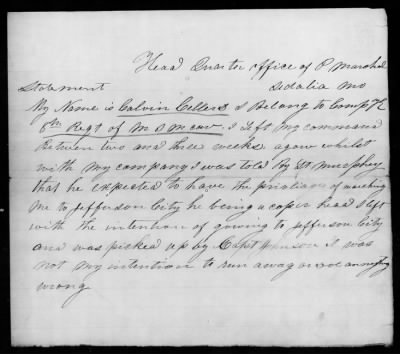 Head Quarter office of P Marshal
Sedalia Mo
Statement
My Name is Calvin Cellers I Belong to Comp
8th Regt of M S M cav. I left my command
Between two and three weeks agow whilst
with my company I was told By Lt Murphey
that he expected to have the privaliage of marching
Me to Jefferson City he being a coper head I left
with the intention of gowing to Jefferson City
and was picked up by Capt it was
not my intention to run away or
wrong